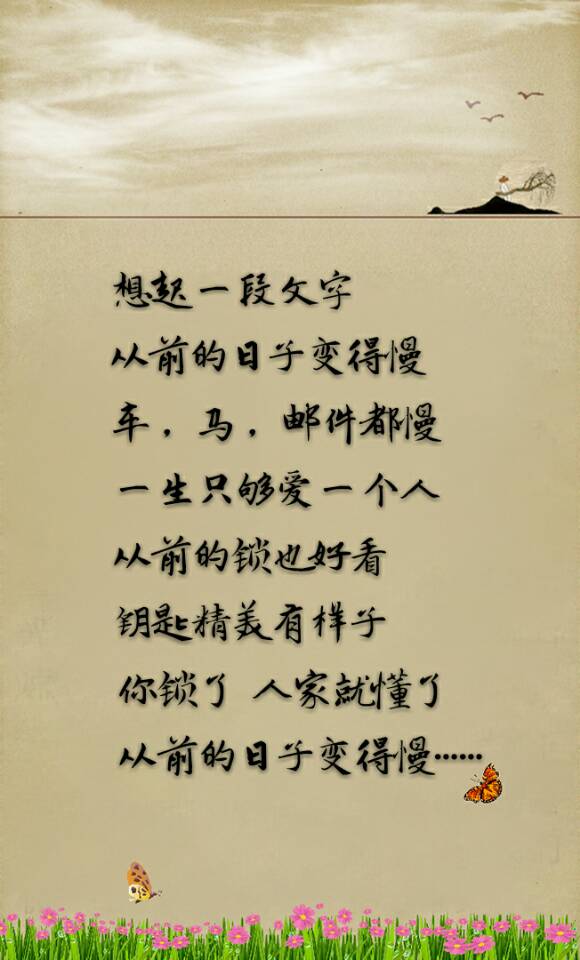 想起一段文字
从前的日子变得慢
车，马，邮件都慢
一生只够爱一个人
从前的锁也好看
钥匙精美有样子
你锁了 人家就懂了
从前的日子变得慢……